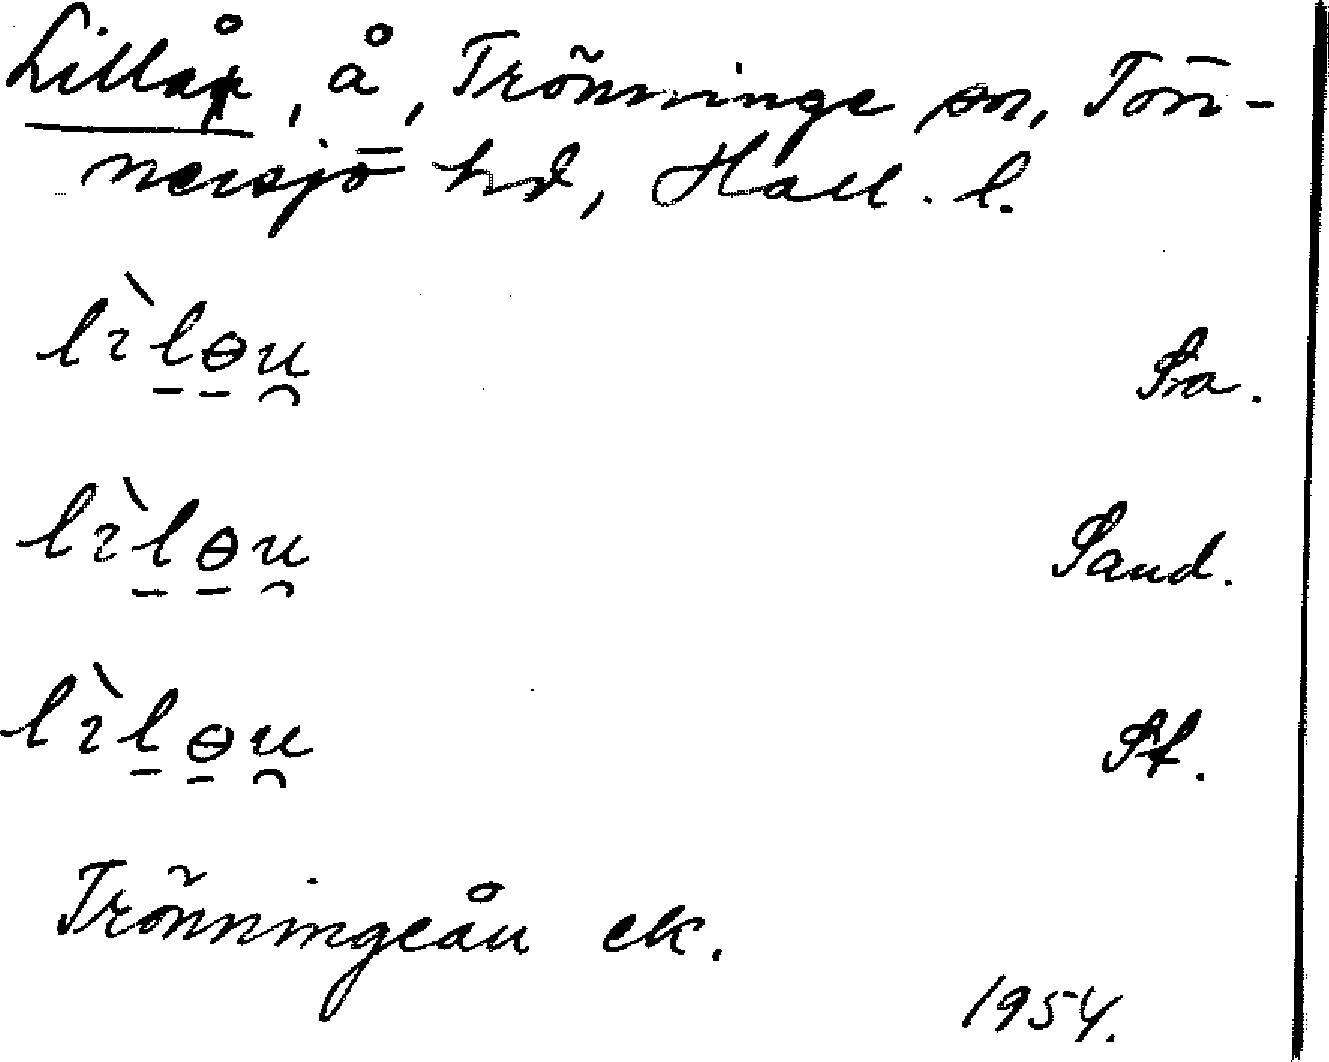 Lillån, å, Trönninge sn, Tön-
nersjö hd, Hall. l.
lìlɵu̯ Sra.
lìlɵu̯ Sand.
lìlɵu̯ St.
Trönningeån ek.
1954.